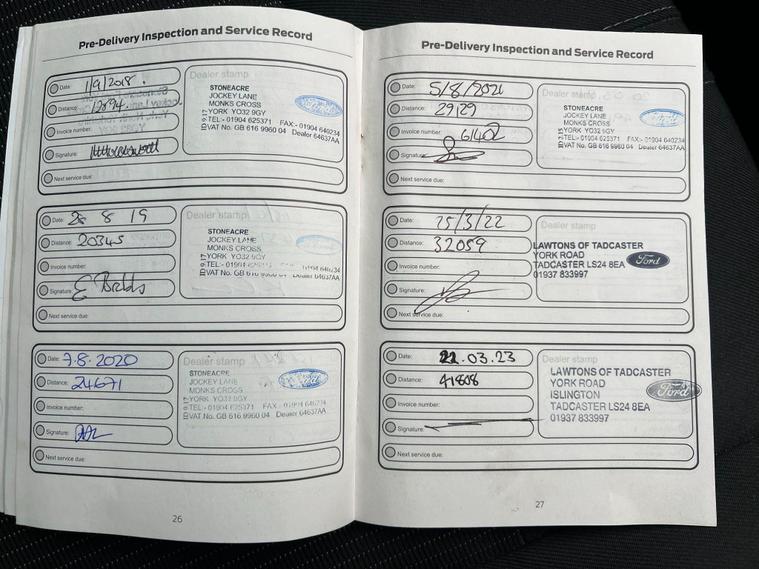 Pre-Delivery Inspection and Service Record
Date: 1/9/2018.
Distance: 12894.
Invoice number:
Signature:
Next service due:
Dealer stamp
STONEACRE
JOCKEY LANE
MONKS CROSS
YORK YO32 9GY
TEL:- 01904 625371 FAX:- 01904 640234
VAT No. GB 616 9960 04 Dealer 64637AA
Ford
Date: 28 8 19
Distance: 20345
Invoice number:
Signature:
Next service due:
Dealer stamp
STONEACRE
JOCKEY LANE
MONKS CROSS
YORK YO32 9GY
Date: 7.8.2020
Distance: 24671
Invoice number:
Signature:
Next service due:
Dealer stamp
STONEACRE
JOCKEY LANE
MONKS CROSS
YORK YO32 9GY
TEL:- 01904 625371 FAX:- 01904 640234
VAT No. GB 616 9960 04 Dealer 64637AA
Ford
26
Pre-Delivery Inspection and Service Record
Date: 5/8/2021
Distance: 29129
Invoice number: 61402
Signature:
Next service due:
Dealer stamp
STONEACRE
JOCKEY LANE
MONKS CROSS
YORK YO32 9GY
TEL:- 01904 625371 FAX:- 01904 640234
VAT No. GB 616 9960 04 Dealer 64637AA
Ford
Date: 25/3/22
Distance: 32059
Invoice number:
Signature:
Next service due:
Dealer stamp
LAWTONS OF TADCASTER
YORK ROAD
TADCASTER LS24 8EA
01937 833997
Ford
Date: 22.03.23
Distance: 41808
Invoice number:
Signature:
Next service due:
Dealer stamp
LAWTONS OF TADCASTER
YORK ROAD
ISLINGTON
TADCASTER LS24 8EA
01937 833997
Ford
27